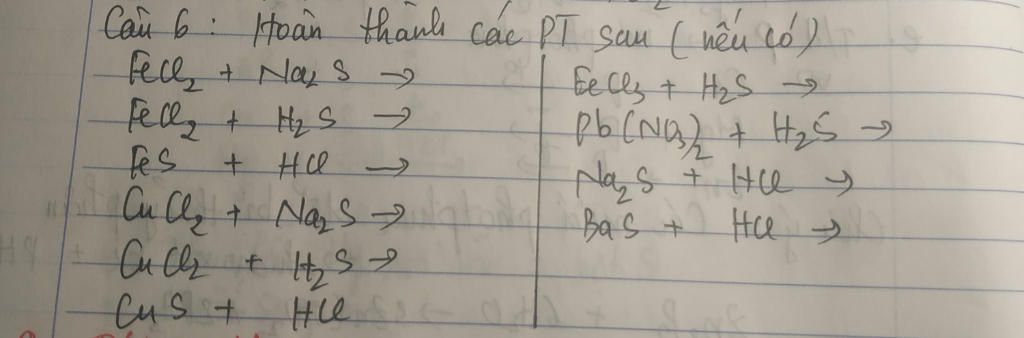 Câu 6 : Hoàn thành các PT sau (nếu có)
FeCl₂ + Na₂S →
FeCl₂ + H₂S →
FeS + HCl →
CuCl₂ + Na₂S →
CuCl₂ + H₂S →
CuS + HCl
FeCl₃ + H₂S →
Pb(NO₃)₂ + H₂S →
Na₂S + HCl →
BaS + HCl →